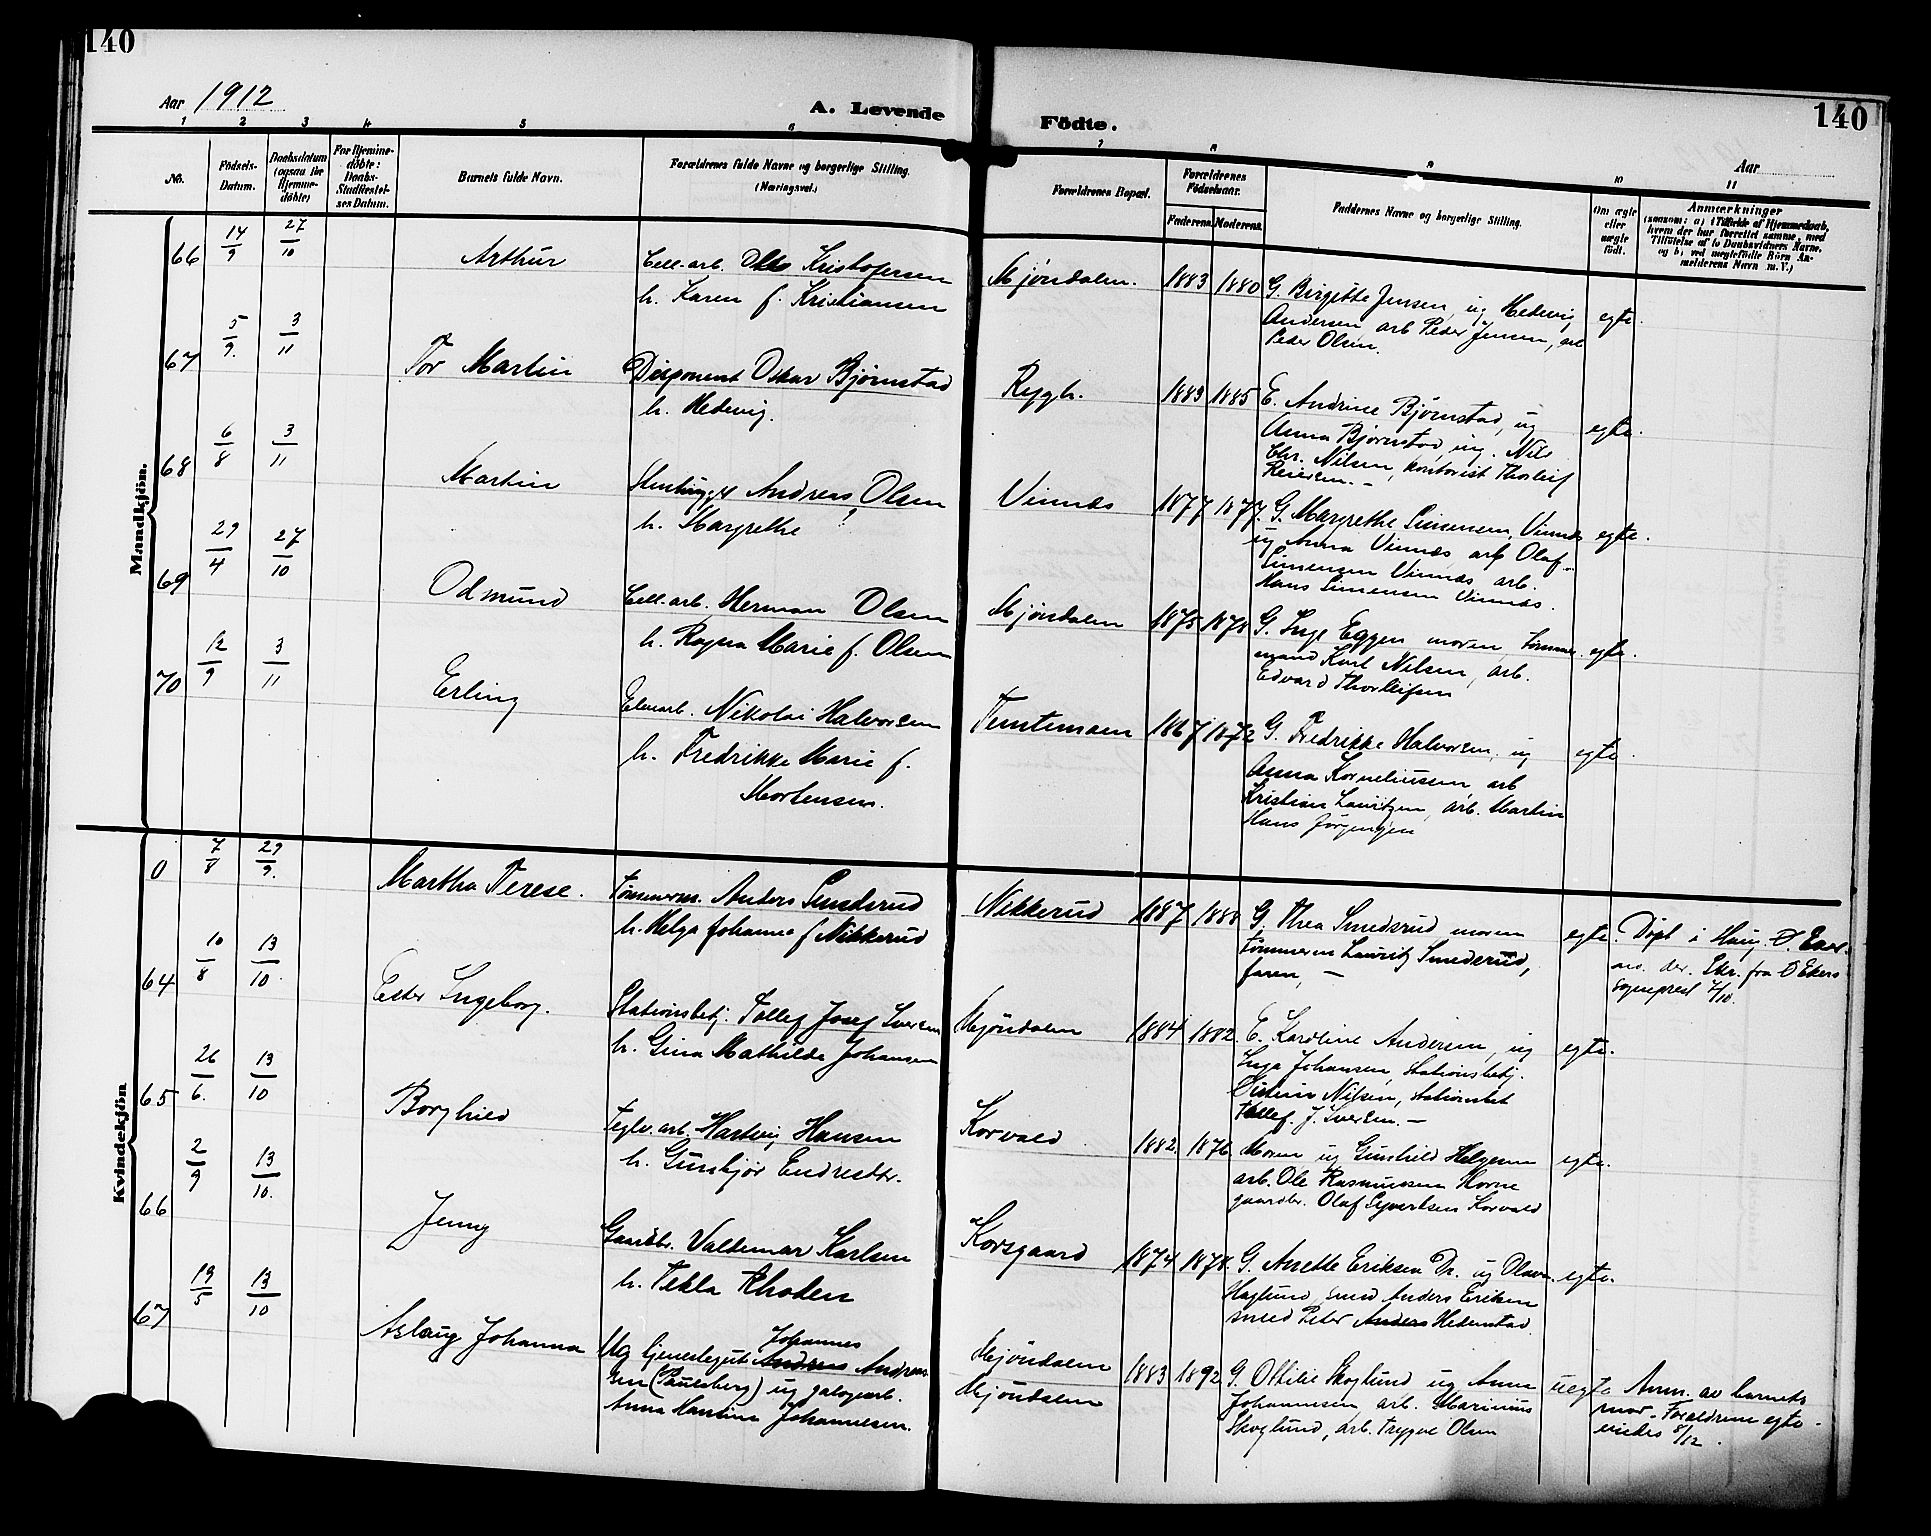 140
140
Aar 1912
A. Levende
Födte.
Aar
1 2 3 4 5 6 7 8 9 10 11
No.
Födsels-
Datum.
Daabsdatum
(ogsaa for
Hjemme-
döbte)
For Hjemme-
döbte:
Daabs-
Stadfæstel-
ses Datum.
Barnets fulde Navn.
Forældrenes fulde Navne og borgerlige Stilling.
(Næringsvei.)
Forældrenes Bopæl.
Forældrenes
Födselsaar.
Faderens. Moderens.
Faddernes Navne og borgerlige Stilling.
Om ægte
eller
uægte
födt.
Anmærkninger
(saasom: a) i Tilfælde af Hjemmedaab,
hvem der har forrettet samme, med
Tilføielse af to Daabsvidners Navne,
og b) ved uægtefödte Börn An-
melderens Navn m. V.)
Mandkjön.
66 14/9 27/10 Arthur
Cell.arb. Otto Kristofersen
h. Karen f. Kristiansen
Mjöndalen. 1883 1880
G. Birgitte Jensen, ug Hedevig
Andersen arb Peder Jensen, arb
Peder Olsen.
egte.
67 5/9. 3/11 Tor Martin
Disponent Oskar Bjørnstad
h. Hedevig.
Rygh. 1883 1885
E. Andrine Bjørnstad, ug
Anna Bjørnstad, ung. Nils
Chr. Nilsen, kontorist Thorleif
Reiersen. –
egte.
68 6/8 3/11 Martin
Stenhugger Andreas Olsen
h. Margrethe
Vinnæs 1877 1877.
G. Margrethe Simensen, Vinnæs
ug Anna Vinnæs arb Olaf
Simensen Vinnæs, arb.
Hans Simensen Vinnæs.
egte.
69 29/4 27/10 Odmund
Cell.arb. Herman Olsen
h. Ragna Marie f. Olsen
Mjöndalen 1875 1878
G. Inge Eggen moren tömmer
mand Karl Nilsen, arb.
Edvard Thorleifsen
egte.
70 12/9 3/11 Erling
Nikolai Halvorsen
h. Fredrikke Marie f.
Mortensen.
Temtemoen 1867 1872
G. Fredrikke Halvorsen, ug
Anna Korneliussen, arb
Kristian Lauritzen, arb. Martin
Hans Jörgensen
egte.
Kvindekjön
0 7/8 29/9. Martha Terese.
Tømmerm. Anders Smedsrud
h. Helga Johanna f Nikkerud
Nikkerud 1887 1888
G. Thea Smedsrud moren
tømmerm Lauritz Smedsrud,
faren, –
egte. Döpt i Haug Ø. Eker
an. der. Skr. fra Ø Ekers
sogneprest 7/10.
64 10/8 13/10. Ester Ingeborg.
Stationsbetj. Tollef Josef Iversen
h. Gina Mathilde Johansen
Mjöndalen 1884 1882.
E. Karoline Andersen, ug
Inga Johansen, stationsbetj.
Kristian Nilsen, stationsbet
Tollef. J. Iversen. –
egte.
65 26/6. 13/10 Borghild
Teglv.arb. Hartvig Hansen
h. Gunbjør Endresdtr.
Korvald 1882. 1876
Moren ug Gunhild Helgesen
arb. Ole Rasmussen Horne
gaardbr. Olaf Syvertsen Korvald
egte.
66 2/9 13/10. Jenny
Gaardbr. Valdemar Karlsen
h. Tekla Rhoden
Korsgaard 1874 1878.
G. Anette Eriksen Dr. ug Olava
Haglund, smed Anders Eriksen
smed Peter Anders Hedenstad.
egte.
67 19/5 13/10 Aslaug Johanna
Johannes
Ug tjenestegut Andreas Andrea
sen (Paulsberg) ug galogearb.
Anna Hansine Johannesen.
Mjöndalen
Mjöndalen
1883 1892
G. Ottilie Skoglund ug Anna
Johannesen, arb. Marinius
Skoglund, arb. Trygve Olsen
uegte Anm. av barnets
mor. Forældrene egte
viedes 8/12.